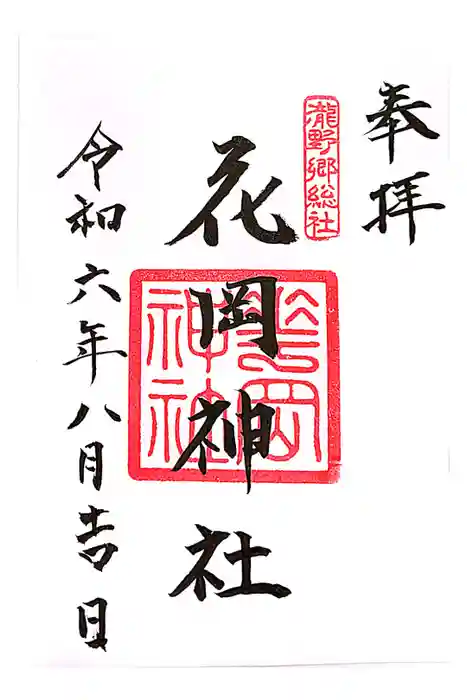 奉拝
瀧野郷総社
花岡神社
花岡神社
令和六年八月吉日